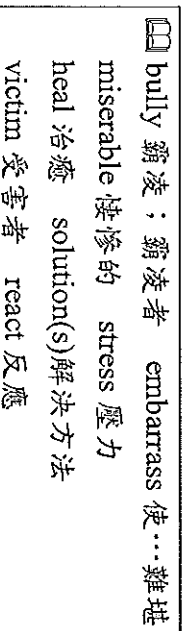 bully 霸凌；霸凌者 embarrass 使…難堪
miserable 悽慘的 stress 壓力
heal 治癒 solution(s)解決方法
victim 受害者 react 反應